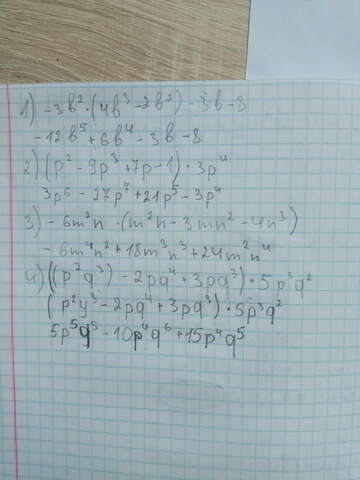 1) -3b²·(4b³-2b²)-3b-8
-12b⁵+6b⁴-3b-8
2) (p²-9p³+7p-1)·3p⁴
3p⁶-27p⁷+21p⁵-3p⁴
3) -6m²n·(m²n-3mn²-4n³)
-6m⁴n²+18m³n³+24m²n⁴
4) ((p²q³)-2pq⁴+3pq³)·5p³q²
(p²y³-2pq⁴+3pq³)·5p³q²
5p⁵q⁵-10p⁴q⁶+15p⁴q⁵